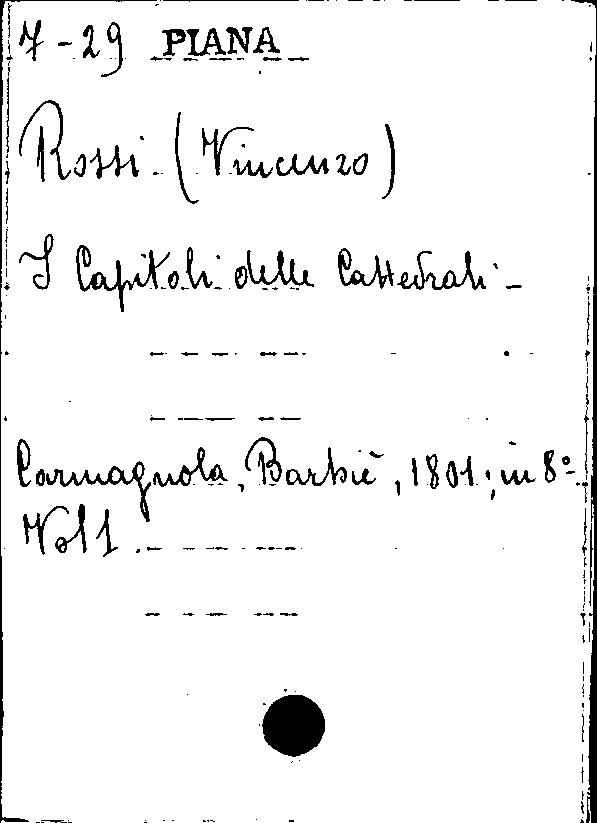 7-29 PIANA
Rossi (Vincenzo)
I Capitoli delle Cattedrali -
Carmagnola, Barbiè, 1801; in 8º
Vol 1.